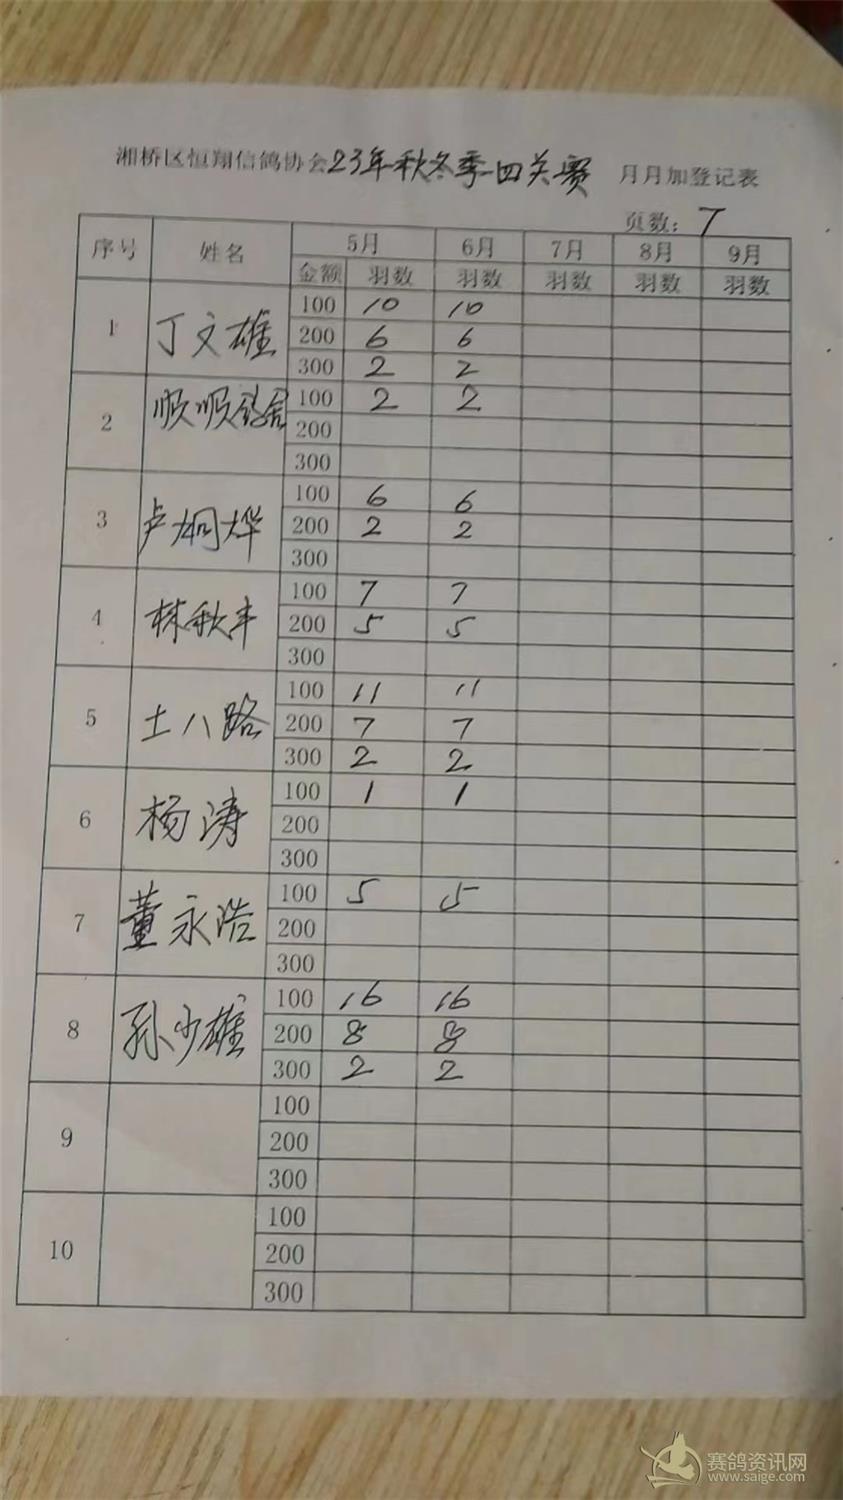 湘桥区恒翔信鸽协会23年秋冬季四关赛 月月加登记表
页数：7
序号 姓名 5月 6月 7月 8月 9月
金额 羽数 羽数 羽数 羽数 羽数
1 丁文雄 100 10 10
200 6 6
300 2 2
2 顺顺鸽舍 100 2 2
200
300
3 卢桐烨 100 6 6
200 2 2
300
4 林秋丰 100 7 7
200 5 5
300
5 土八路 100 11 11
200 7 7
300 2 2
6 杨涛 100 1 1
200
300
7 董永浩 100 5 5
200
300
8 孙少雄 100 16 16
200 8 8
300 2 2
9 100
200
300
10 100
200
300
赛鸽资讯网
www.saige.com